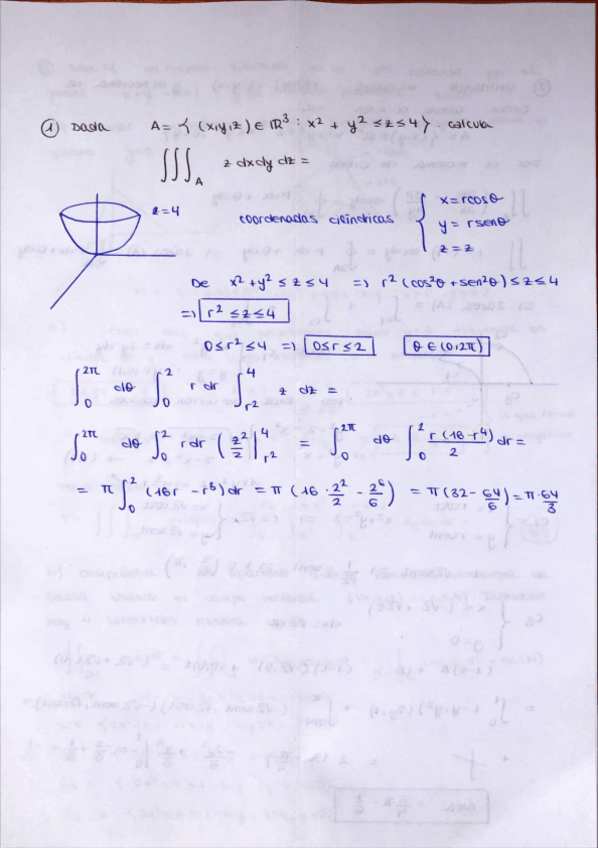 ① Dada A = { (x,y,z) ∈ ℝ³ : x² + y² ≤ z ≤ 4 } . calcula
∭_A z dx dy dz =
z = 4
coordenadas cilíndricas { x = r cosθ
y = r senθ
z = z
De x² + y² ≤ z ≤ 4 => r² (cos²θ + sen²θ) ≤ z ≤ 4
=> r² ≤ z ≤ 4
0 ≤ r² ≤ 4 => 0 ≤ r ≤ 2 θ ∈ (0, 2π)
∫_0^{2π} dθ ∫_0^2 r dr ∫_{r²}^4 z dz =
∫_0^{2π} dθ ∫_0^2 r dr ( z²/2 |_{r²}^4 = ∫_0^{2π} dθ ∫_0^2 r (16 - r⁴)/2 dr =
= π ∫_0^2 (16r - r⁵) dr = π (16 · 2²/2 - 2⁶/6) = π (32 - 64/6) = π · 64/3